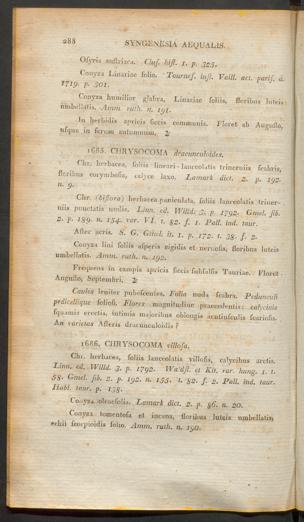 288 SYNGENESIA AEQUALIS.
Osyris austriaca. Clus. hist. 1. p. 325.
Conyza Linariae folio. Tournef. inst. Vaill. act. paris. d.
1719. p. 301.
Conyza humilior glabra, Linariae foliis, floribus luteis
umbellatis. Amm. ruth. n. 191.
In herbidis apricis siccis communis. Floret ab Augusto,
usque in serum autumnum. ♃
1685. CHRYSOCOMA dracunculoides.
Chr. herbacea, foliis lineari-lanceolatis trinerviis scabris,
floribus corymbosis, calyce laxo. Lamark dict. 2. p. 192.
n. 9.
Chr. (biflora) herbacea paniculata, foliis lanceolatis triner-
viis punctatis nudis. Linn. ed. Willd. 3. p. 1792. Gmel. sib.
2. p. 189. n. 154. var. VI. t. 82. f. 1. Pall. ind. taur.
Aster acris. S. G. Gmel. it. 1. p. 172. t. 38. f. 2.
Conyza lini foliis asperis rigidis et nervosis, floribus luteis
umbellatis. Amm. ruth. n. 192.
Frequens in campis apricis siccis subsalsis Tauriae. Floret
Augusto, Septembri. ♃
Caules leniter pubescentes. Folia nuda scabra. Pedunculi
pedicellique foliosi. Flores magnitudine praecedentis: calycinis
squamis erectis, intimis majoribus oblongis acutiusculis scariosis.
An varietas Asteris dracunculoidis?
1686. CHRYSOCOMA villosa.
Chr. herbacea, foliis lanceolatis villosis, calycibus arctis.
Linn. ed. Willd. 3. p. 1792. Waldst. et Kit. rar. hung. 1. t.
58. Gmel. sib. 2. p. 192. n. 155. t. 82. f. 2. Pall. ind. taur.
Habl. taur. p. 158.
Conyza oleaefolia. Lamark dict. 2. p. 86. n. 20.
Conyza tomentosa et incana, floribus luteis umbellatis,
echii scorpioidis folio. Amm. ruth. n. 190.